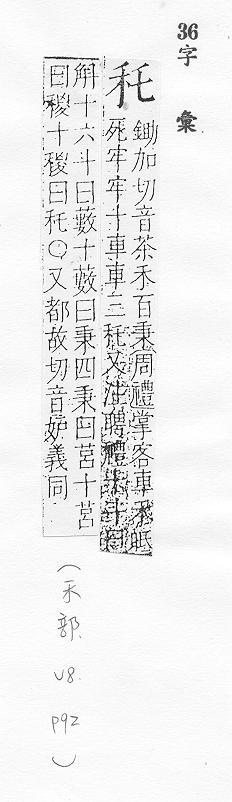 36字 彙
秅
鋤加切音茶禾百秉周禮掌客車禾眡
死牢牢十車車三秅又注聘禮十斗曰
斛十六斗曰藪十藪曰秉四秉曰筥十筥
曰稯十稯曰秅○又都故切音妒義同
(禾部. V8. P92)